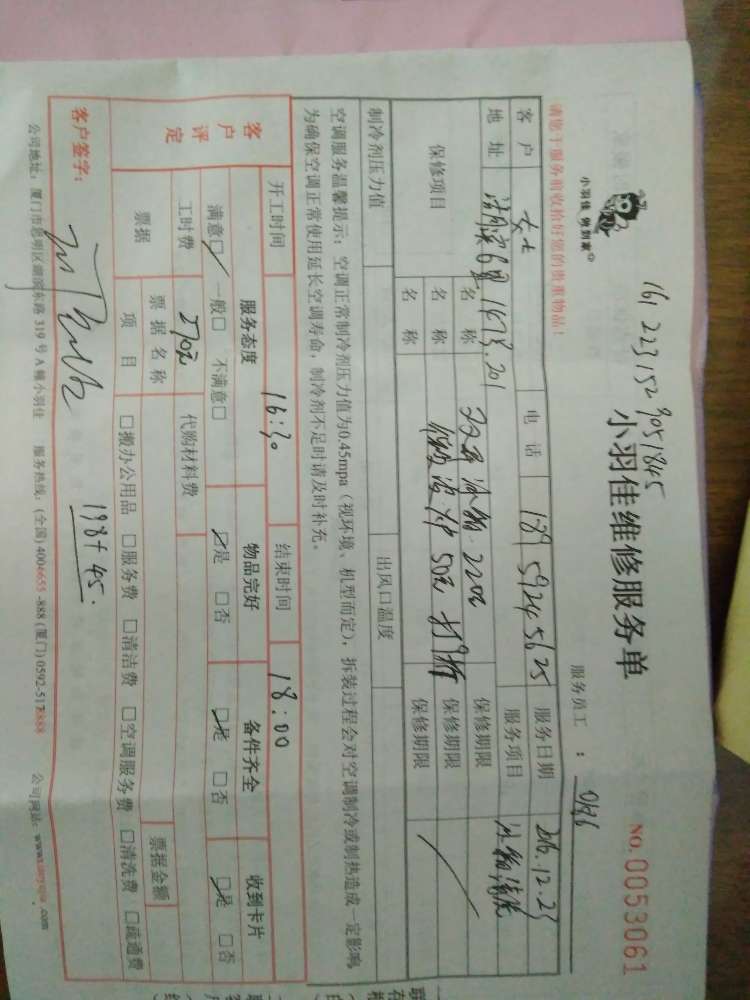 161223152905 1845
小羽佳 做到家
小羽佳维修服务单
NO. 0053061
请您于服务前收拾好您的贵重物品!
服务员工:
客户 女士 电话 189 59245625 服务日期 2016.12.23
地址 服务项目 冰箱清洗
保修项目 名称 冰箱 220元 保修期限
名称 50元 保修期限
名称 保修期限
制冷剂压力值 出风口温度
空调服务温馨提示:空调正常制冷剂压力值为0.45mpa(视环境、机型而定),拆装过程会对空调制冷或制热造成一定影响,
为确保空调正常使用延长空调寿命,制冷剂不足时请及时补充。
开工时间 16:30 结束时间 18:00
客户评定 服务态度 物品完好 备件齐全 收到卡片
满意□ 一般□ 不满意□ □是 □否 □是 □否 □是 □否
工时费 270元 代购材料费
票据 票据名称 票据金额
项目 □搬办公用品 □服务费 □清洁费 □空调服务费 □清洗费 □疏通费
客户签字: 198+45.
公司地址:厦门市思明区湖滨东路 319 号 A 幢小羽佳 服务热线:(全国)4006655-888 (厦门) 0592-5178888 公司网站: